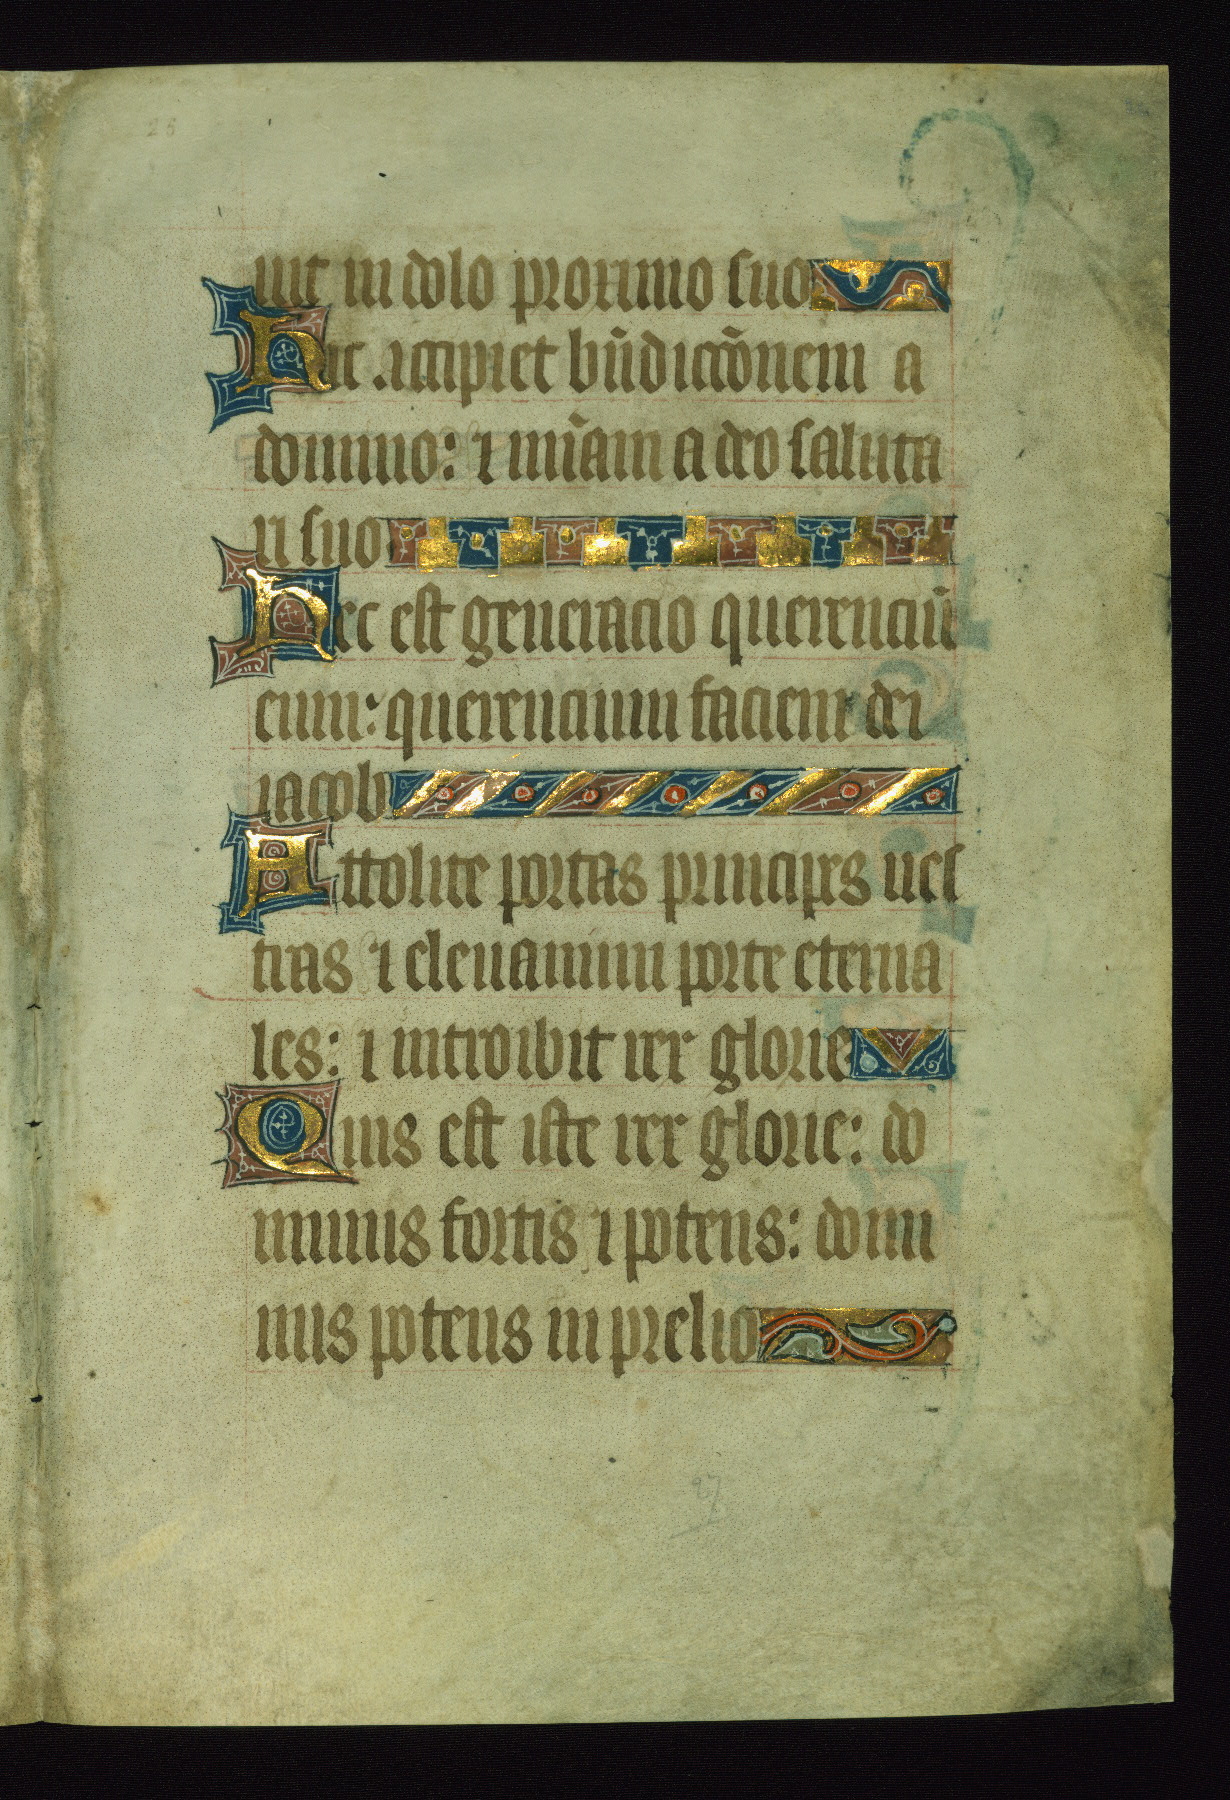 26
uit in dolo proximo suo
Hic accipiet bn̄dictōnem a
domino: ⁊ mīam a deo saluta
ri suo
Hec est generacio querenciū
eum: querencium faciem dei
iacob
Attolite portas principes ues
tras ⁊ eleuamini porte eterna
les: ⁊ introibit rex glorie
Quis est iste rex glorie: do
minus fortis ⁊ potens: domi
nus potens in prelio
27